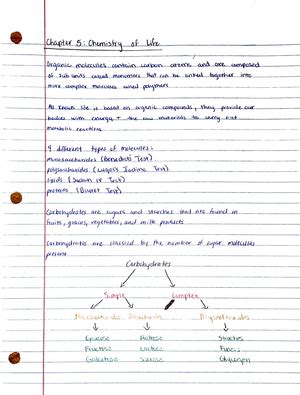 Chapter 5: Chemistry of Life
Organic molecules contain carbon atoms and are composed
of sub units called monomers that can be linked together into
more complex molecules called polymers
All known life is based on organic compounds, they provide our
bodies with energy + the raw materials to carry out
metabolic reactions
4 different types of molecules:
monosaccharides (Benedict's Test)
polysaccharides (Lugol's Iodine Test)
lipids (Sudan IV Test)
proteins (Biuret Test)
Carbohydrates are sugars and starches that are found in
fruits, grains, vegetables, and milk products
Carbohydrates are classified by the number of sugar molecules
present
Carbohydrates
Simple Complex
Monosaccharides Disaccharides Polysaccharides
Glucose Maltose Starches
Fructose Lactose
Galactose Sucrose Glycogen